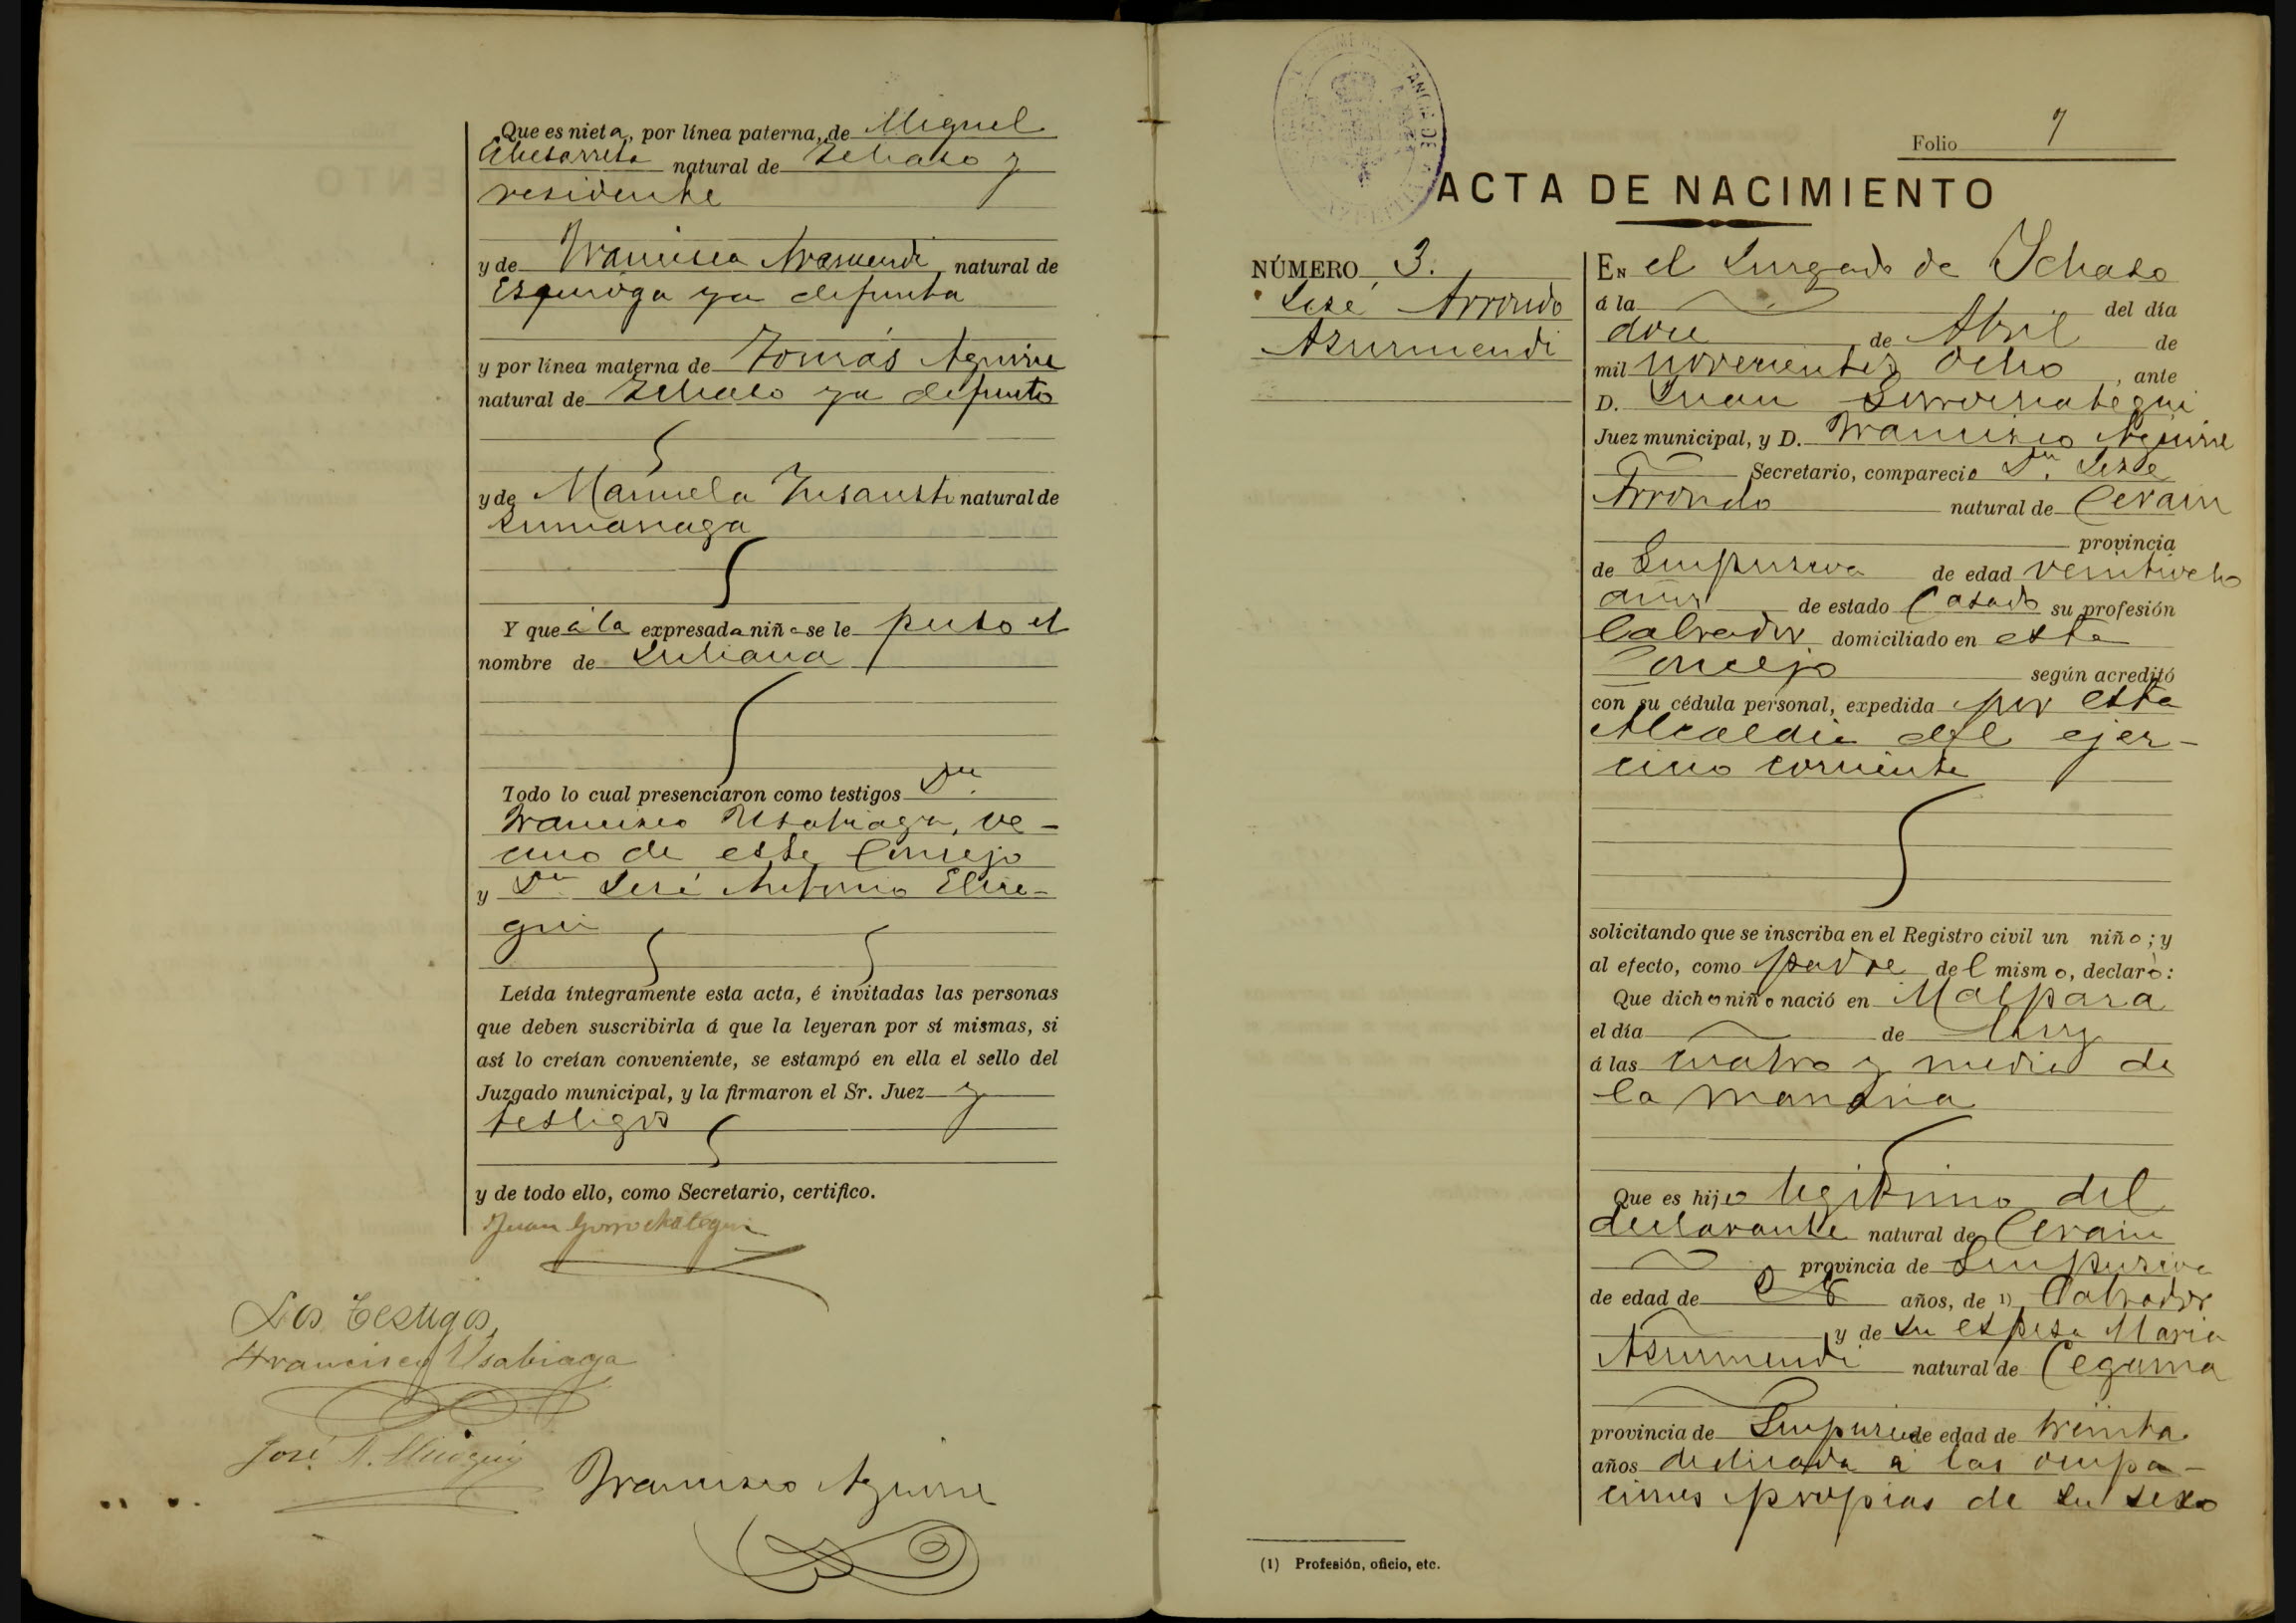 Que es nieta, por línea paterna, de Miguel
natural de Ichaso y
residente
y de Francisca natural de
Ezquioga ya difunta
y por línea materna de Tomás Aguirre
natural de Ichaso ya difunto
y de Manuela Insausti natural de
Zumarraga
Y que á la expresada niña se le puso el
nombre de Juliana
Todo lo cual presenciaron como testigos Dn.
Francisco Usabiaga, ve-
cino de este Concejo
y Dn José Antonio Elice-
gui
Leída íntegramente esta acta, é invitadas las personas
que deben suscribirla á que la leyeran por sí mismas, si
así lo creían conveniente, se estampó en ella el sello del
Juzgado municipal, y la firmaron el Sr. Juez y
testigos
y de todo ello, como Secretario, certifico.
Juan Gorrochategui
Los Testigos,
Francisco Usabiaga
José A. Elicegui
Francisco Aguirre
Folio 7
ACTA DE NACIMIENTO
NÚMERO 3.
José Arrondo
Azurmendi
EN el Juzgado de Ichaso
á la del día
doce de Abril de
mil novecientos ocho, ante
D. Juan Gorrochategui
Juez municipal, y D. Francisco Aguirre
Secretario, compareció Dn. José
Arrondo natural de Cerain
provincia
de Guipuzcoa de edad veintiocho
años de estado Casado su profesión
labrador domiciliado en este
Concejo según acreditó
con su cédula personal, expedida por esta
Alcaldia del ejer-
cicio corriente
solicitando que se inscriba en el Registro civil un niño; y
al efecto, como padre del mismo, declaró:
Que dicho niño nació en Malpara
el día de hoy
á las cuatro y media de
la mañana
Que es hijo legitimo del
declarante natural de Cerain
provincia de Guipuzcoa
de edad de 28 años, de 1) labrador
y de su esposa Maria
Azurmendi natural de Cegama
provincia de Guipuzcoa de edad de treinta
años dedicada á las ocupa-
ciones propias de su sexo
(1) Profesión, oficio, etc.